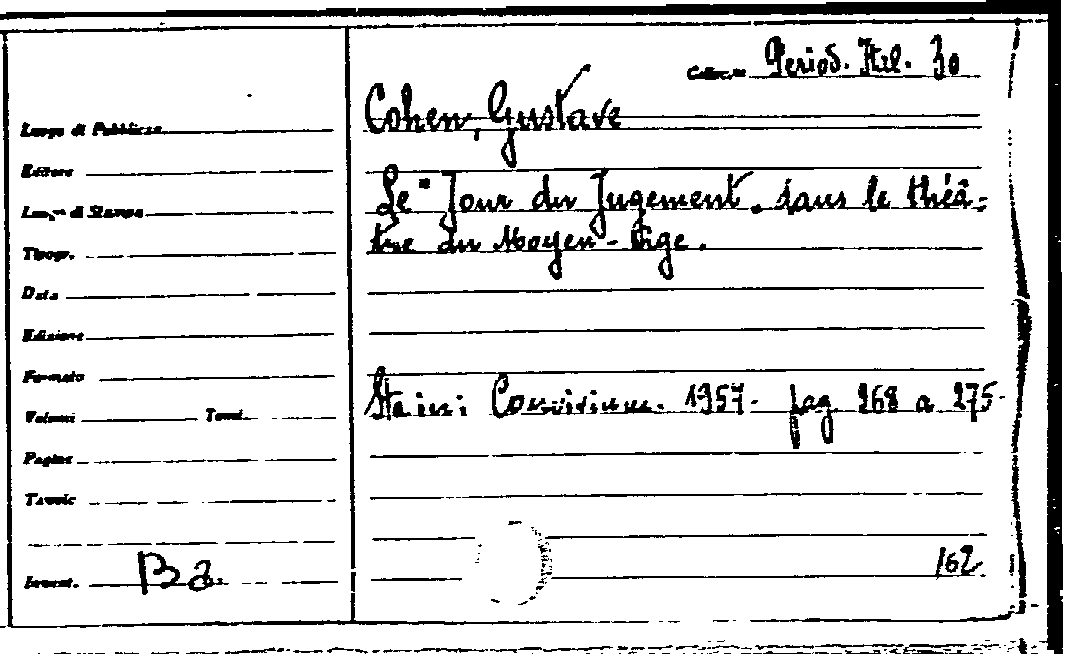 Colloc.ne Period. Ital. 30
Cohen, Gustave
Luogo di Pubblicaz.
Editore
Le "Jour du Jugement" dans le théâ-
Luogo di Stampa
tre du Moyen-Âge.
Tipogr.
Data
Edizione
Formato
Sta in: Convivium. 1957. pag 268 a 275.
Volumi Tomi
Pagine
Tavole
Invent. Ba. 162